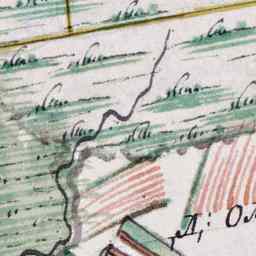 Д: Ол